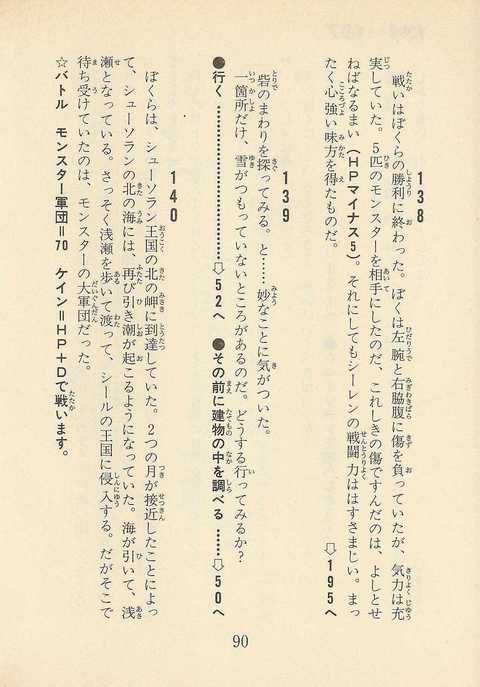 138
戦いはぼくらの勝利に終わった。ぼくは左腕と右脇腹に傷を負っていたが、気力は充
実していた。5匹のモンスターを相手にしたのだ、これしきの傷ですんだのは、よしとせ
ねばなるまい(HPマイナス5)。それにしてもシーレンの戦闘力ははすさまじい。まっ
たく心強い味方を得たものだ。
⇨195へ
139
砦のまわりを探ってみる。と……妙なことに気がついた。
一箇所だけ、雪がつもっていないところがあるのだ。どうする行ってみるか?
●行く ……………………⇨52へ ●その前に建物の中を調べる ……⇨50へ
140
ぼくらは、シューソラン王国の北の岬に到達していた。2つの月が接近したことによっ
て、シューソランの北の海には、再び引き潮が起こるようになっていた。海が引いて、浅
瀬となっている。さっそく浅瀬を歩いて渡って、シールの王国に侵入する。だがそこで
待ち受けていたのは、モンスターの大軍団だった。
☆バトル モンスター軍団=70 ケイン=HP+Dで戦います。
90